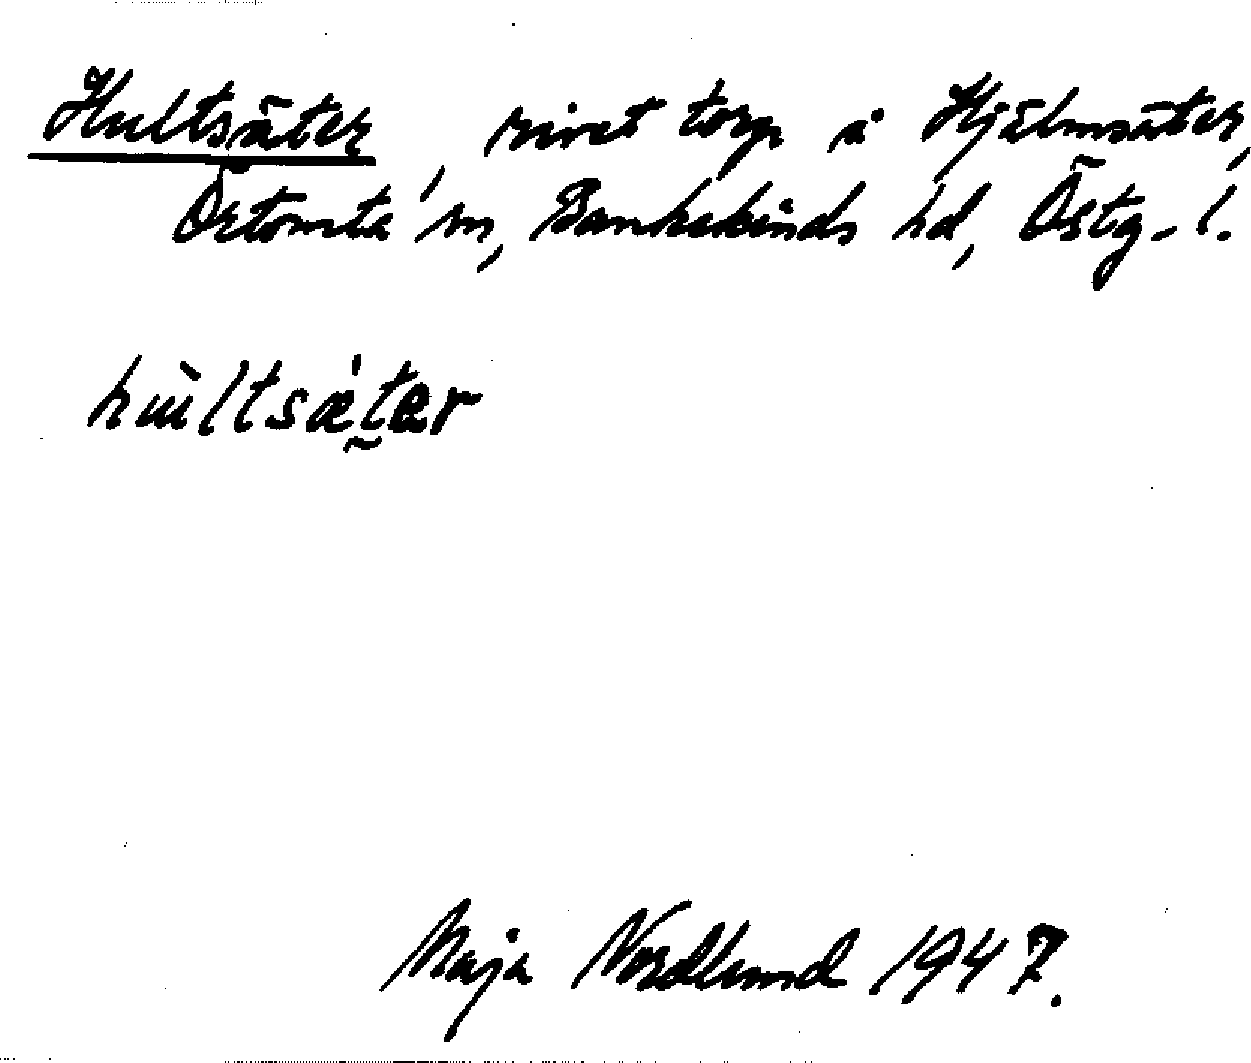 Hultsäter, rivet torp å Hjälmsäter,
Örtomta sn, Bankekinds hd, Östg-l.
hùltsǽter
Maja Nordlund 1947.